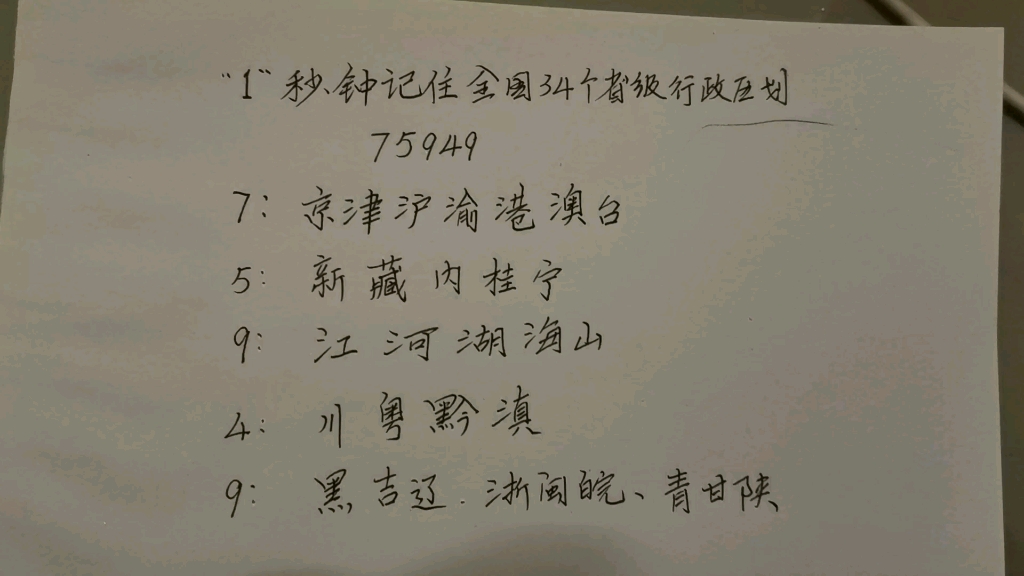 “1”秒钟记住全国34个省级行政区划
75949
7：京津沪渝港澳台
5：新藏内桂宁
9：江河湖海山
4：川粤黔滇
9：黑吉辽．浙闽皖、青甘陕